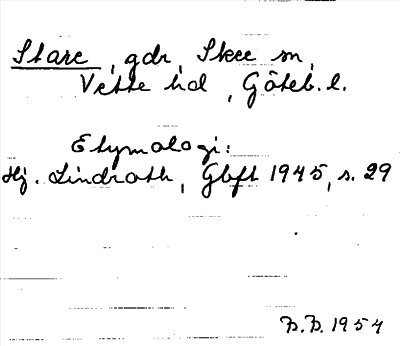 Stare, gdr, Skee sn,
Vette hd, Göteb. l.
Etymologi:
Hj. Lindroth, Gbft 1945, s. 29
B.B. 1954